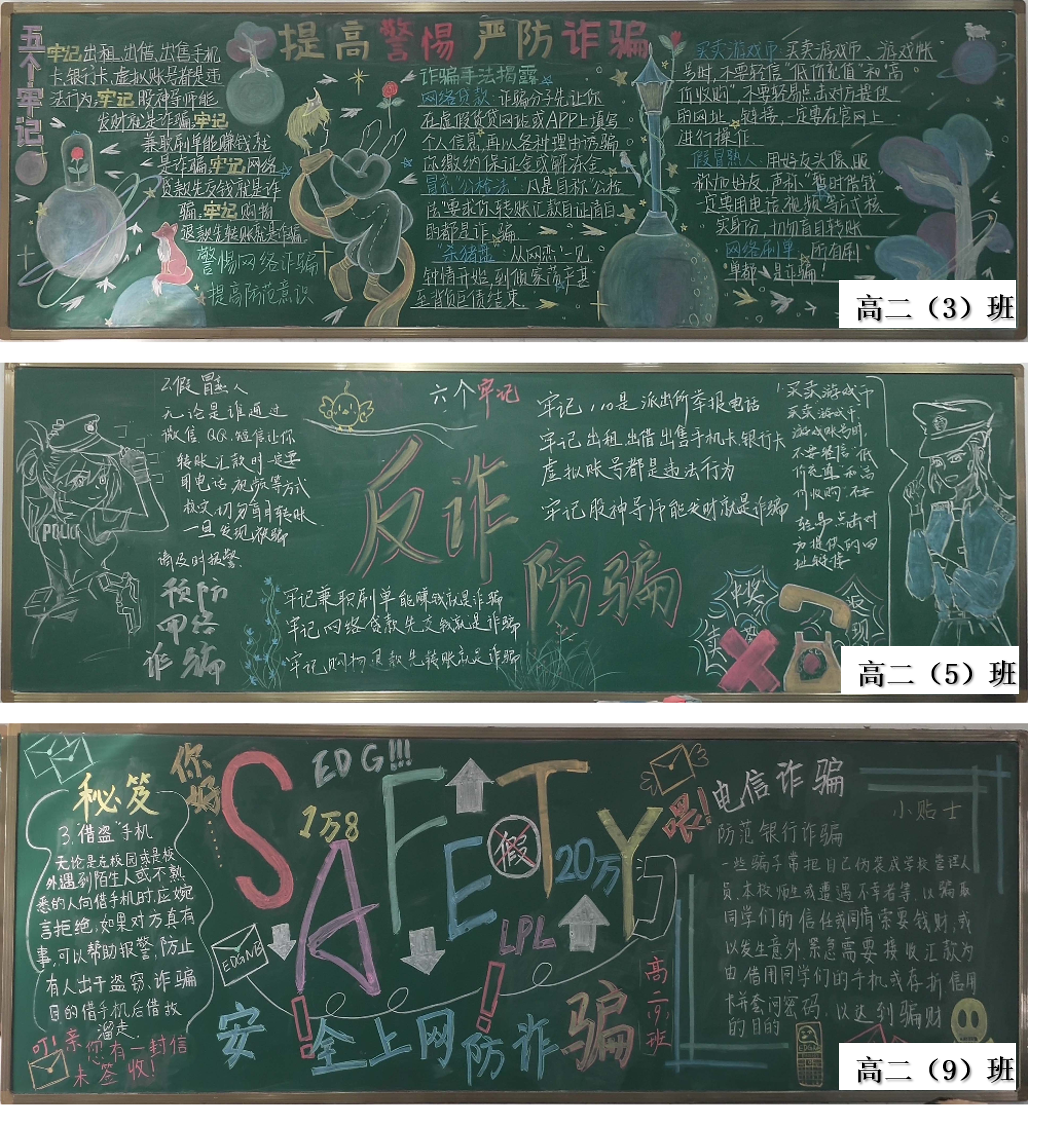 提高警惕 严防诈骗
五个牢记
牢记出租、出借、出售手机
卡、银行卡、虚拟账号都是违
法行为,牢记股神导师能
发财就是诈骗,牢记
兼职刷单能赚钱就
是诈骗,牢记网络
贷款先交钱就是诈
骗,牢记购物
退款先转账就是诈骗
警惕网络诈骗
提高防范意识
诈骗手法揭露
网络贷款:诈骗分子先让你
在虚假贷贷网址或APP上填写
个人信息,再以各种理由诱骗
你缴纳保证金或解冻金
冒充“公检法”:凡是自称“公检
法”要求你转账汇款自证清白
的都是诈骗
“杀猪盘”:从网恋一见
钟情开始,到倾家荡产甚
至背负巨债结束
买卖游戏币:买卖游戏币、游戏账
号时,不要轻信“低价充值”和“高
价收购”,不要轻易点击对方提供
的网址、链接,一定要在官网上
进行操作.
假冒熟人:用好友头像、昵
称加好友,声称“暂时借钱”
一定要用电话、视频等方式核
实身份,切勿盲目转账
网络刷单:所有刷
单都是诈骗!
高二（3）班
2.假冒熟人
无论是谁通过
微信、QQ、短信让你
转账汇款时一定要
用电话、视频等方式
核实,切勿盲目转账
一旦发现被骗
请及时报警.
预防
网络
诈骗
POLICE
六个牢记
反诈
防骗
牢记110是派出所举报电话
牢记出租、出借出售手机卡、银行卡
虚拟账号都是违法行为
牢记股神导师能发财就是诈骗
牢记兼职刷单能赚钱就是诈骗
牢记网络贷款先交钱就是诈骗
牢记购物退款先转账就是诈骗
1.买卖游戏币
买卖游戏币、
游戏账号时,
不要轻信“低
价充值”和“高
价收购”不要
轻易点击对
方提供的网
址链接
中奖
返现
高二（5）班
秘笈
3.“借盗”手机
无论是在校园或是校
外遇到陌生人或不熟
悉的人向借手机时,应婉
言拒绝,如果对方真有
事,可以帮助报警,防止
有人出于盗窃、诈骗
目的借手机后借故
溜走
叮!亲你有一封信
未签收!
你好……
EDG!!!
SAFETY
1万8
假
20万
喂!
LPL
EDGNB
安全上网防诈骗
高二9班
电信诈骗
小贴士
防范银行诈骗
一些骗子常把自己伪装成学校管理人
员、本校师生或遭遇不幸者等,以骗取
同学们的信任或同情索要钱财,或
以发生意外、紧急需要接收汇款为
由,借用同学们的手机或存折信用
卡并套问密码,以达到骗财
的目的
EDG
高二（9）班